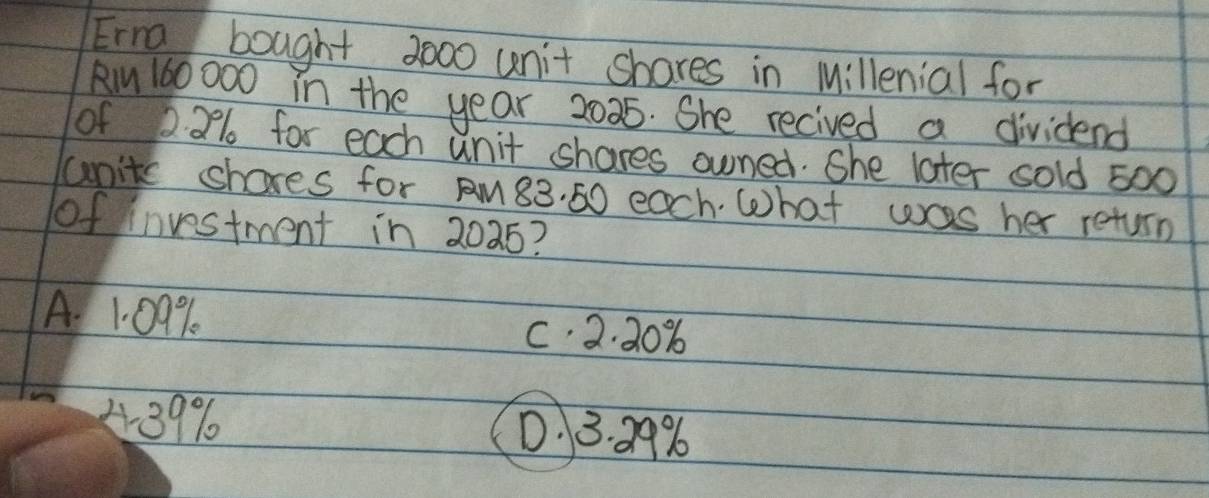 Erna bought 2000 unit shares in Millenial for
RM 160 000 in the year 2025. She recived a dividend
of 2.2% for each unit shares owned. She later sold 500
units shares for RM 83.50 each. What was her return
of investment in 2025?
A. 1.09%
C. 2.20%
4.39%
D. 3.29%